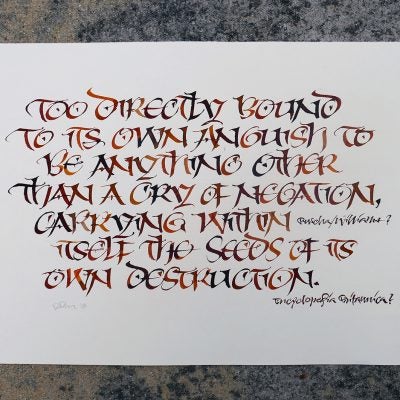 TOO DIRECTLY BOUND
TO ITS OWN ANGUISH TO
BE ANYTHING OTHER
THAN A CRY OF NEGATION,
CARRYING WITHIN
ITSELF THE SEEDS OF ITS
OWN DESTRUCTION.
Encyclopedia Britannica?